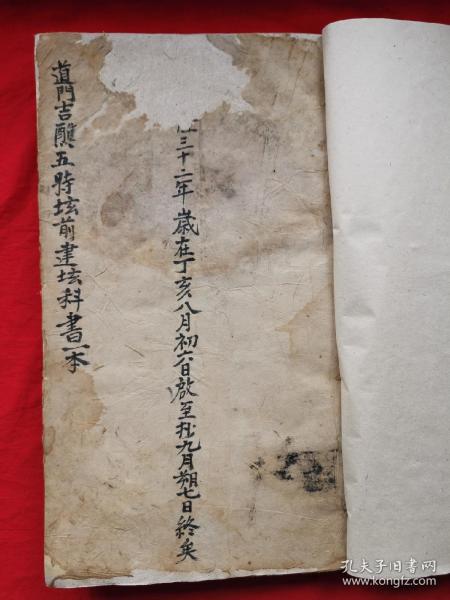 三十二年歲在丁亥八月初六日啟至於九月朔七日終矣
道門吉醮五時坛前建坛科書一本
孔夫子旧书网
www.kongfz.com